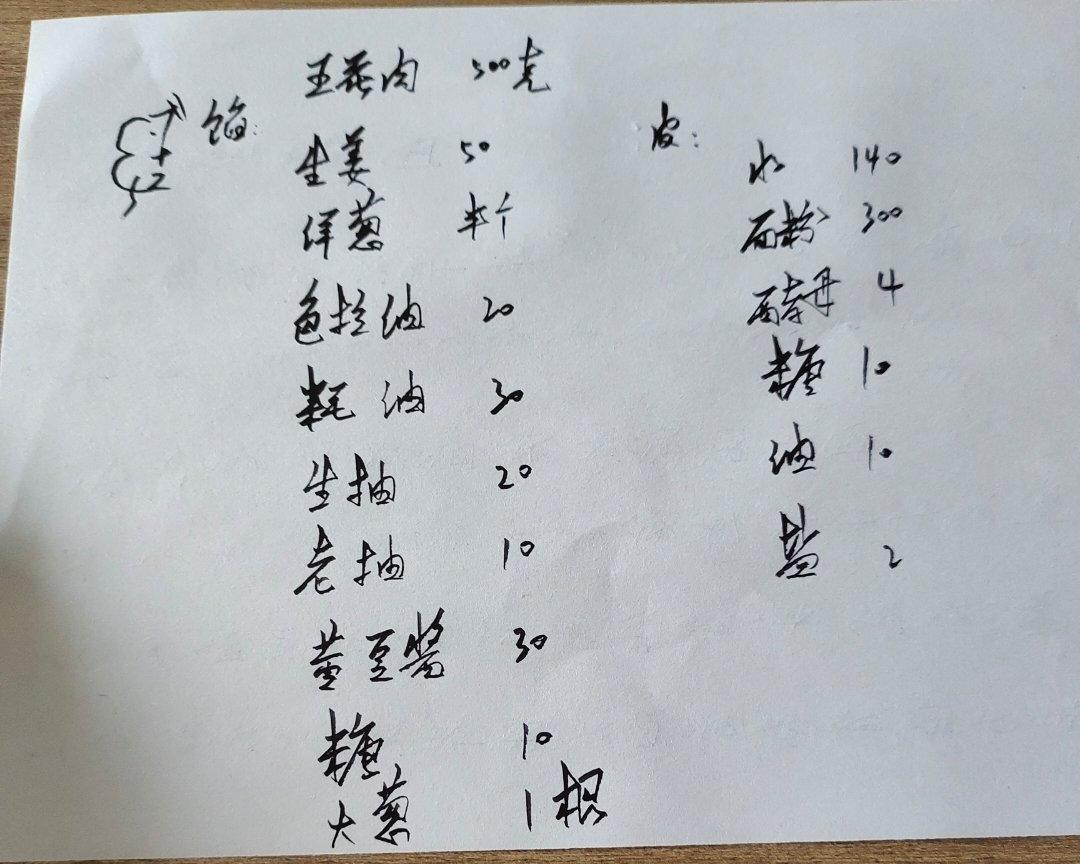 馅:
五花肉 500克
生姜 50
洋葱 半个
色拉油 20
耗油 30
生抽 20
老抽 10
黄豆酱 30
糖 10
大葱 1根
皮:
水 140
面粉 300
酵母 4
糖 10
油 10
盐 2